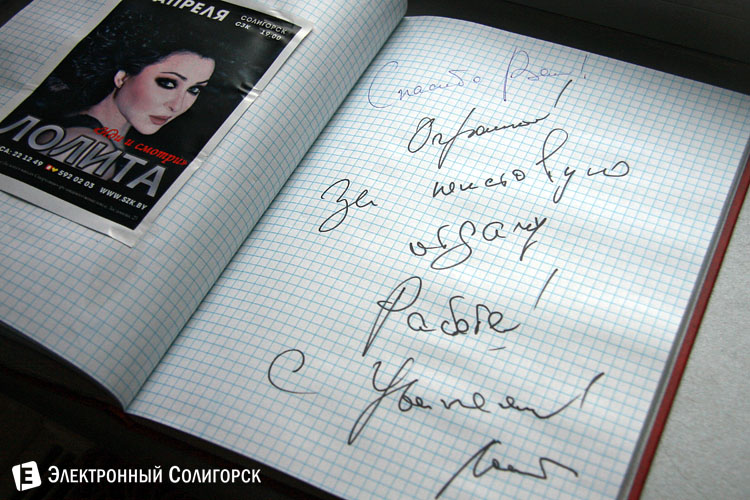 АПРЕЛЯ
СОЛИГОРСК
СЗК 19.00
«Ню и смотри»
ЛОЛИТА
СА: 22 12 49 592 02 03 WWW.SZK.BY
Спасибо Вам!
Огромное!
За неистовую
отдачу
Работе!
С Уважением!
Электронный Солигорск